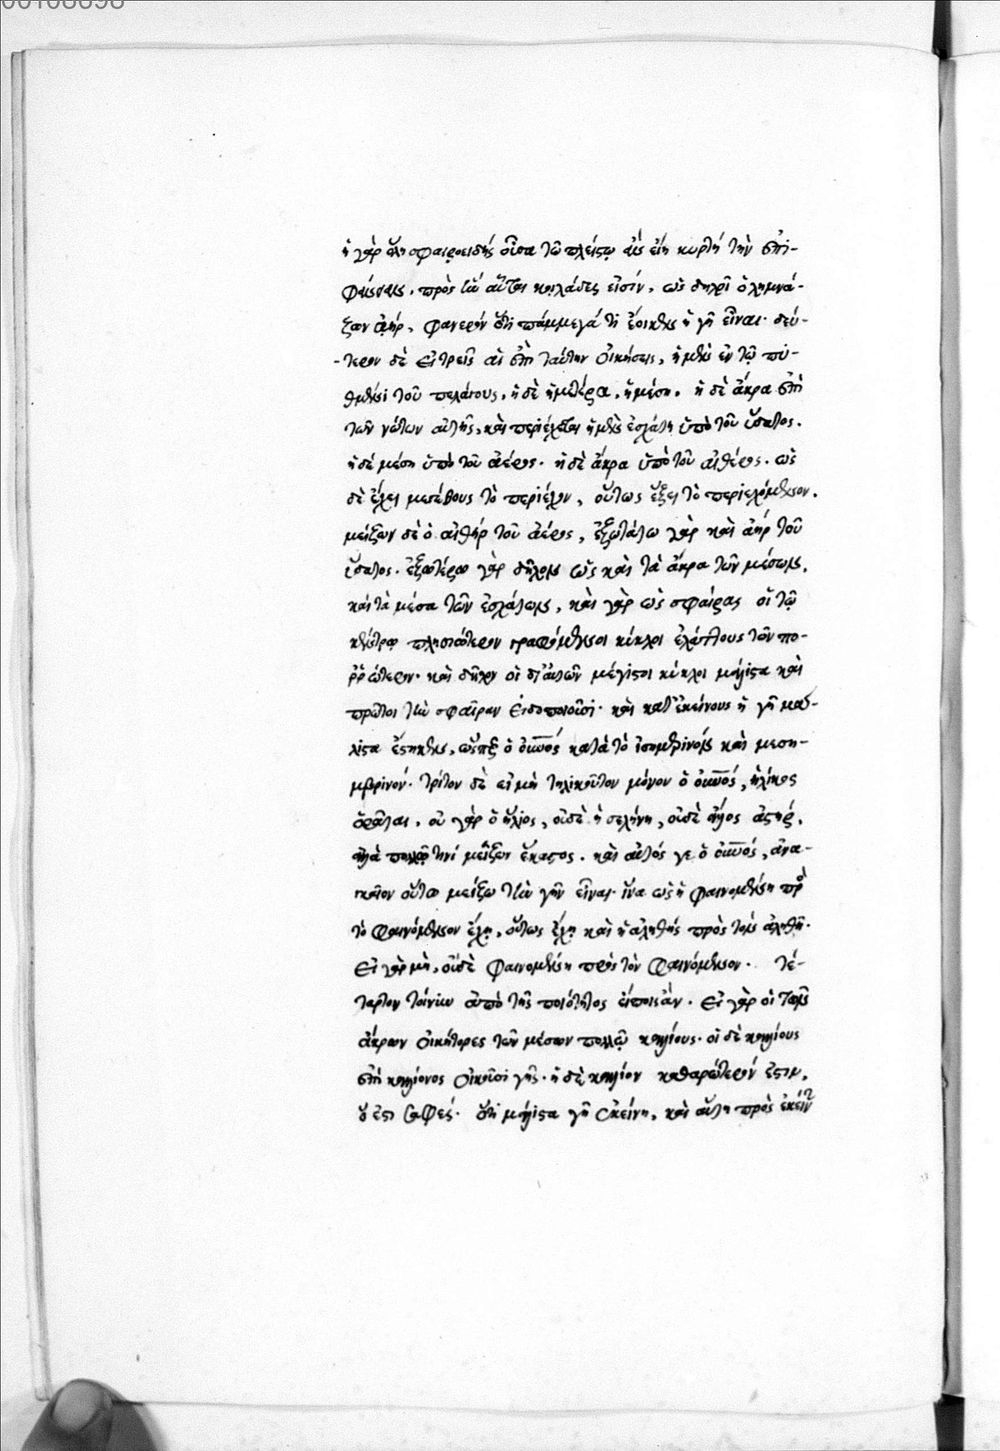 00168698
ἡ γὰρ ὅλη σφαιροειδὴς οὖσα τῶ πλείστω ἂν εἴη κυρτὴ τὴν ἐπι-
φάνειαν. πρὸς ἣν αὗται κοιλάδες εἰσίν. ὡς δηλοῖ ὁ λιμνά-
ζων ἀήρ. φανερὸν ὅτι πάμμεγά τι ἔοικεν ἡ γῆ εἶναι. δεύ-
-τερον δὲ εἰ τρεῖς αἱ ἐπὶ ταύτην οἰκήσεις, ἡ μὲν ἐν τῶ πυ-
θμένι τοῦ πελάγους, ἡ δὲ ἡμετέρα, ἡ μέση. ἡ δὲ ἄκρα ἐπὶ
τῶν νώτων αὐτῆς, καὶ περιέχεται ἡ μὲν ἐσχάτη ὑπὸ τοῦ ὕδατος.
ἡ δὲ μέση ὑπὸ τοῦ ἀέρος. ἡ δὲ ἄκρα ὑπὸ τοῦ αἰθέρος. ὡς
δὲ ἔχει μεγέθους τὸ περιέχον, οὕτως ἕξει τὸ περιεχόμενον.
μείζων δὲ ὁ αἰθὴρ τοῦ ἀέρος, ἐξωτάτω γὰρ καὶ ἀὴρ τοῦ
ὕδατος. ἐξωτέρω γὰρ δῆλον ὡς καὶ τὰ ἄκρα τῶν μέσων,
καὶ τὰ μέσα τῶν ἐσχάτων, καὶ γὰρ ὡς σφαίρας οἱ τῶ
κέντρω πλησιώτερον γραφόμενοι κύκλοι ἐλάττους τῶν πο-
ρρώτερον. καὶ δῆλον οἱ δι' αὐτῶν μέγιστοι κύκλοι μάλιστα καὶ
πρῶτοι τὴν σφαῖραν εἰδοποιοῦσι. καὶ κατ' ἐκείνους ἡ γῆ μά-
λιστα ἕστηκεν, ὥσπερ ὁ οὐνος κατὰ τὸ ἰσημερινὸν καὶ μεση-
μβρινόν. τρίτον δὲ εἰ μὴ τηλικοῦτον μόνον ὁ οὐνος, ἡλίκος
ὁρᾶται, οὐ γὰρ ὁ ἥλιος, οὐδὲ ἡ σελήνη, οὐδὲ ἄλλος ἀστήρ,
ἀλλὰ πολλῶ τινὶ μείζων ἕκαστος. καὶ αὐτός γε ὁ οὐνος, ἀνα-
γκαῖον οὕτω μείζω τὴν γῆν εἶναι. ἵνα ὡς ἡ φαινομένη πρὸς
τὸ φαινόμενον ἔχη, οὕτως ἔχη καὶ ἡ ἀληθὴς πρὸς τὸν ἀληθῆ.
εἰ γὰρ μὴ, οὐδὲ φαινομένη πρὸς τὸν φαινόμενον. τέ-
ταρτον τοίνυν ἀπὸ τῆς ποιότητος εἴποις ἄν. εἰ γὰρ οἱ τῶν
ἄκρων οἰκήτορες τῶν μέσων πολλῶ καλλίους. οἱ δὲ καλλίους
ἐπὶ καλλίονος οἰκοῦσι γῆς. ἡ δὲ κάλλιον καθαρώτερόν ἐστιν,
ὅ ἐστι σαφές. ὅτι μάλιστα γῆ ἐκείνη, καὶ αὕτη πρὸς ἐκείνην